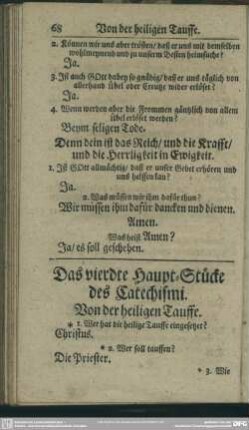 68 Von der heiligen Tauffe.
2. Können wir uns aber trösten/ daß er uns mit demselben
wohlmeynend und zu unserm Besten heimsuche?
Ja.
3. Ist auch GOtt dabey so gnädig/ daß er uns täglich von
allerhand übel oder Creutze wider erlöset?
Ja.
4. Wenn werden aber die Frommen gäntzlich von allem
übel erlöset werden?
Beym seligen Tode.
Denn dein ist das Reich/ und die Krafft/
und die Herrligkeit in Ewigkeit.
1. Ist GOtt allmächtig/ daß er unser Gebet erhören und
uns helffen kan?
Ja.
2. Was müssen wir ihm dafür thun?
Wir müssen ihm dafür dancken und dienen.
Amen.
Was heist Amen?
Ja/ es soll geschehen.
Das vierdte Haupt-Stücke
des Catechismi.
Von der heiligen Tauffe.
* 1. Wer hat die heilige Tauffe eingesetzet?
Christus.
* 2. Wer soll tauffen?
Die Priester.
* 3. Wie